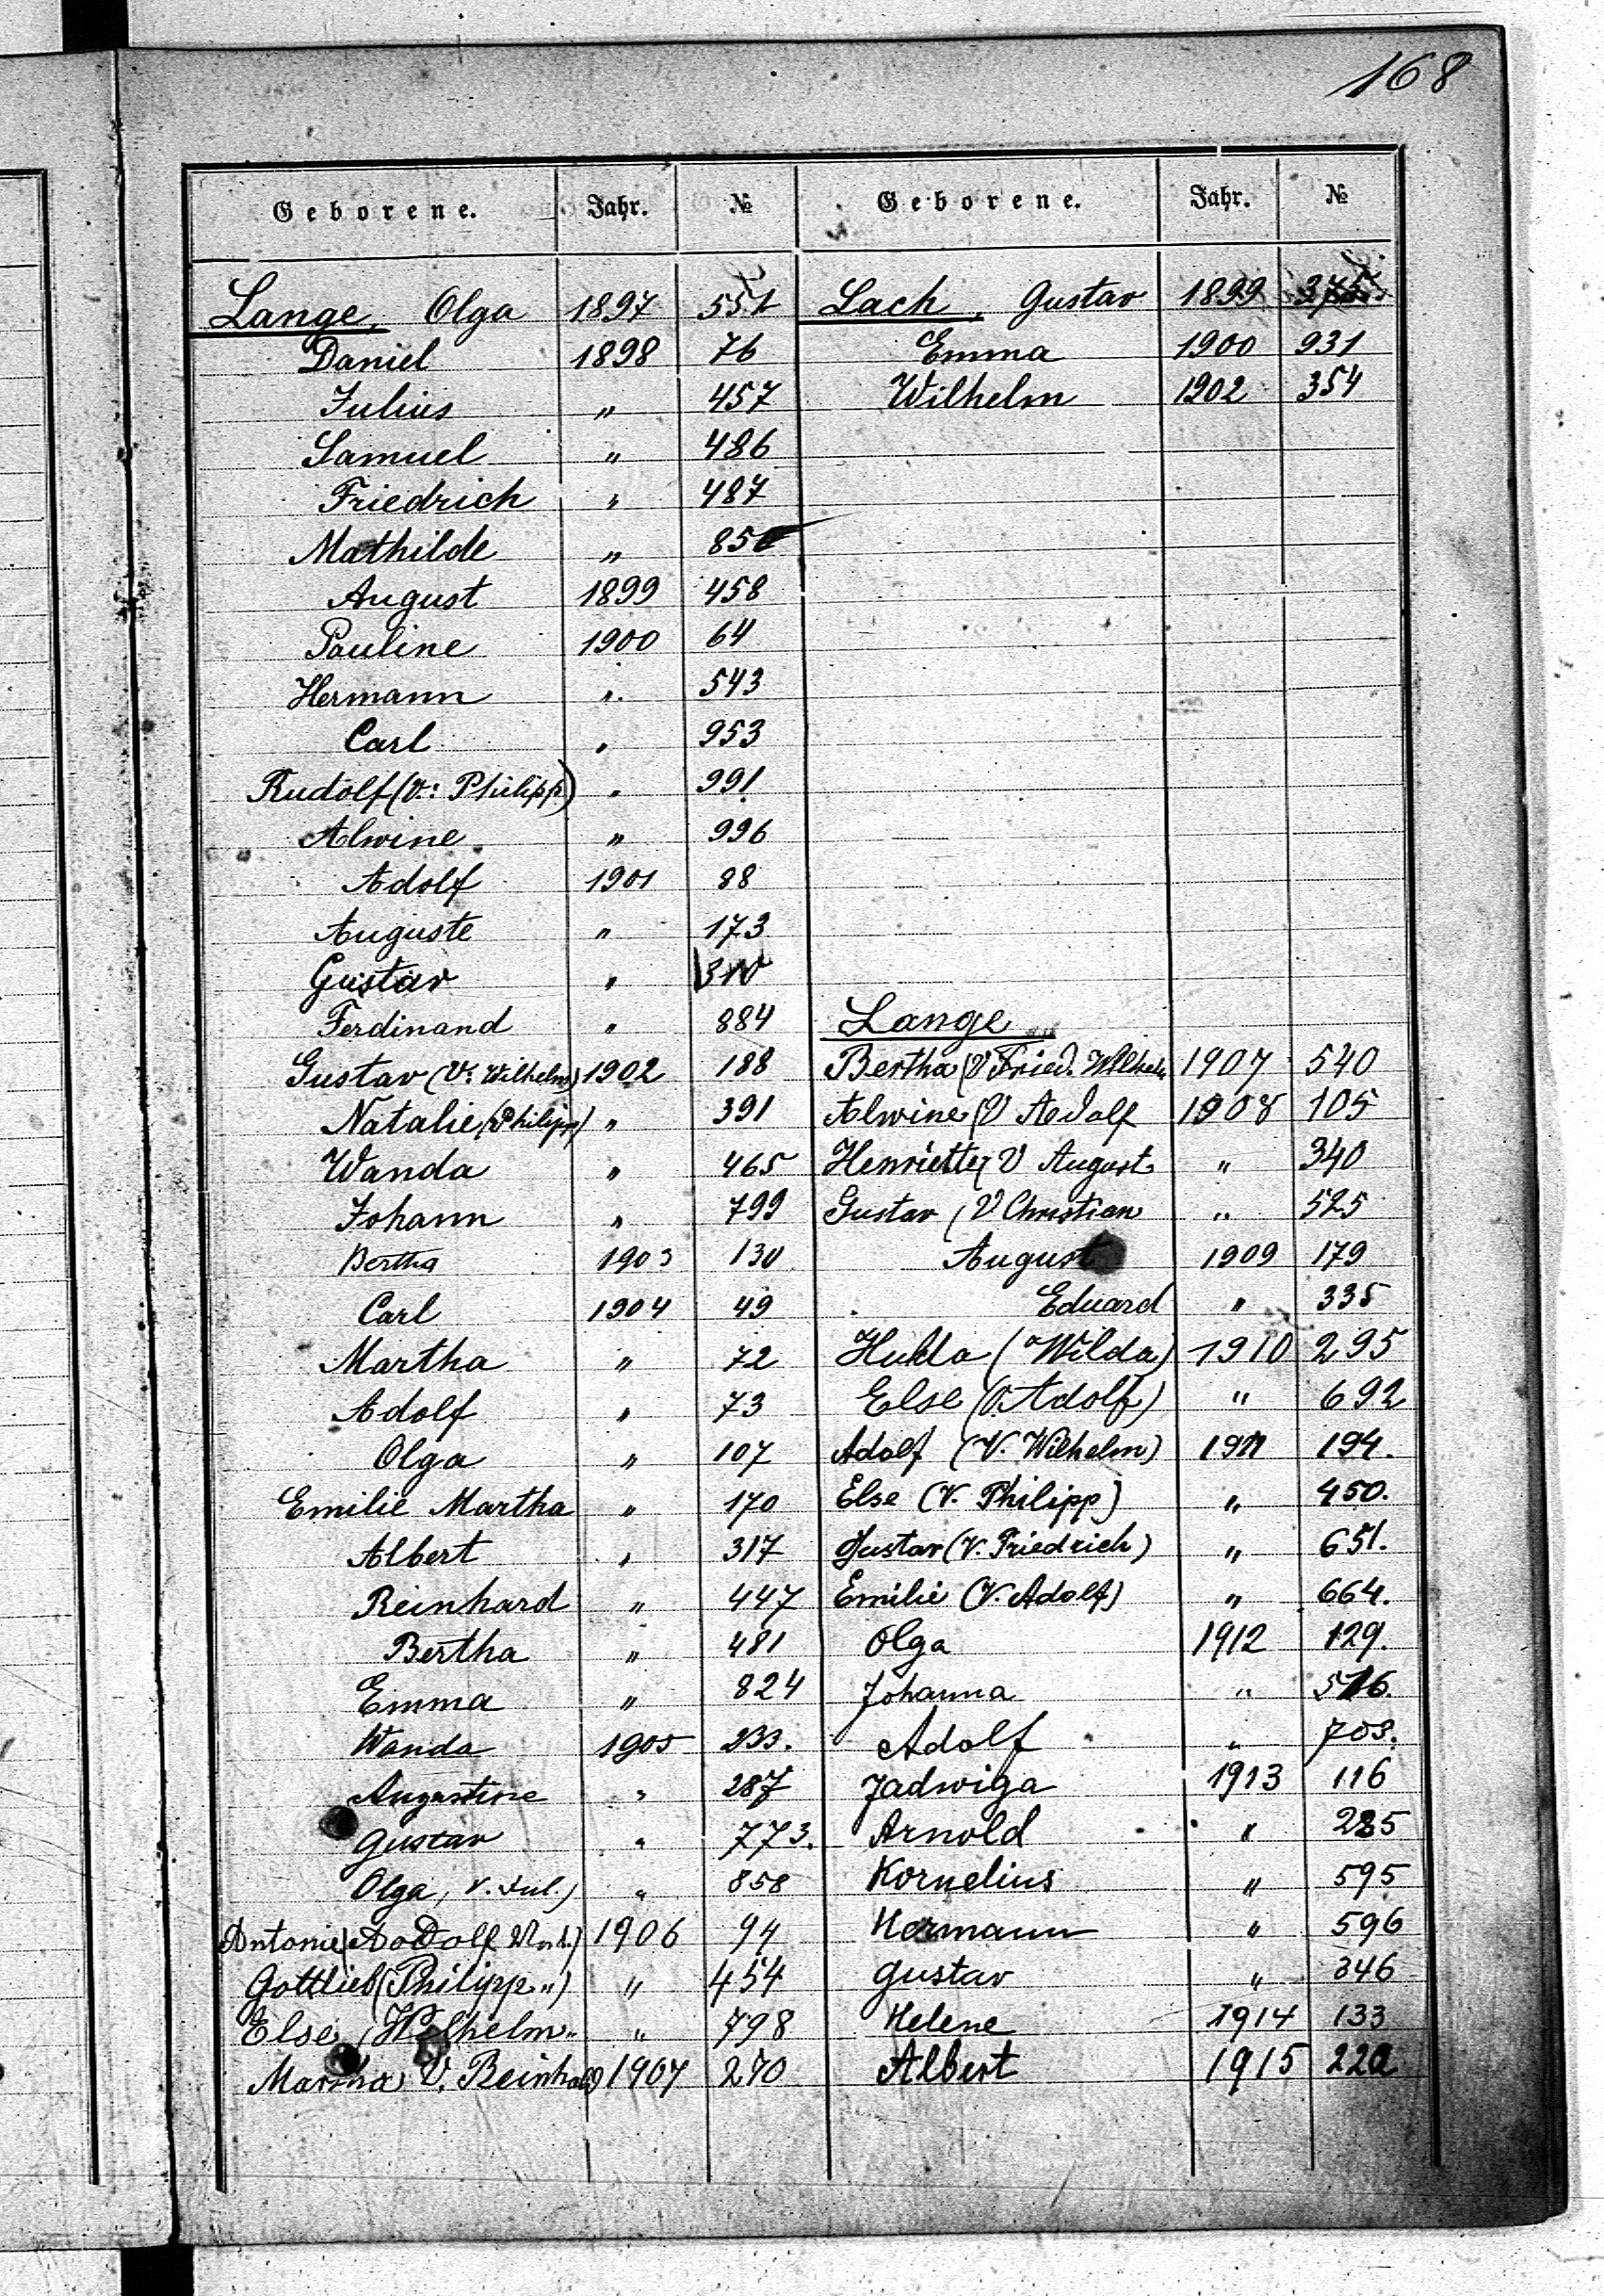 168
Geborene. Jahr. №
Lange, Olga 1897 551
Daniel 1898 76
Julius " 457
Samuel " 486
Friedrich " 487
Mathilde " 850
August 1899 458
Pauline 1900 64
Hermann " 543
Carl " 953
Rudolf (V: Philipp) " 991
Alwine " 996
Adolf 1901 88
Auguste " 173
Gustav " 310
Ferdinand " 884
Gustav (V. Wilhelm) 1902 188
Natalie (Philipp) " 391
Wanda " 465
Johann " 799
Bertha 1903 130
Carl 1904 49
Martha " 72
Adolf " 73
Olga " 107
Emilie Martha " 170
Albert " 317
Reinhard " 447
Bertha " 481
Emma " 824
Wanda 1905 233.
Augustine " 287
Gustav " 773.
Olga, V. Jul.) " 858
Antonie (Adolf 1906 94
Gottlieb (Philipp ") " 454
Else (Wilhelm " " 798
Martha V. Reinhard) 1907 270
Geborene. Jahr. №
Lach, Gustav 1899 375
Emma 1900 931
Wilhelm 1902 354
Lange
Bertha (V Fried. Wilhelm 1907 540
Alwine (V Adolf 1908 105
Henriette (V August " 340
Gustav (V Christian " 525
August 1909 179
Eduard " 335
Hulda (Wilda) 1910 295
Else (V. Adolf) " 692
Adolf (V. Wilhelm) 1911 194.
Else (V. Philipp) " 450.
Gustav (V. Friedrich) " 651.
Emilie (V. Adolf) " 664.
Olga 1912 129.
Johanna " 516.
Adolf " 703.
Jadwiga 1913 116
Arnold " 285
Kornelius " 595
Hermann " 596
Gustav " 346
Helene 1914 133
Albert 1915 222